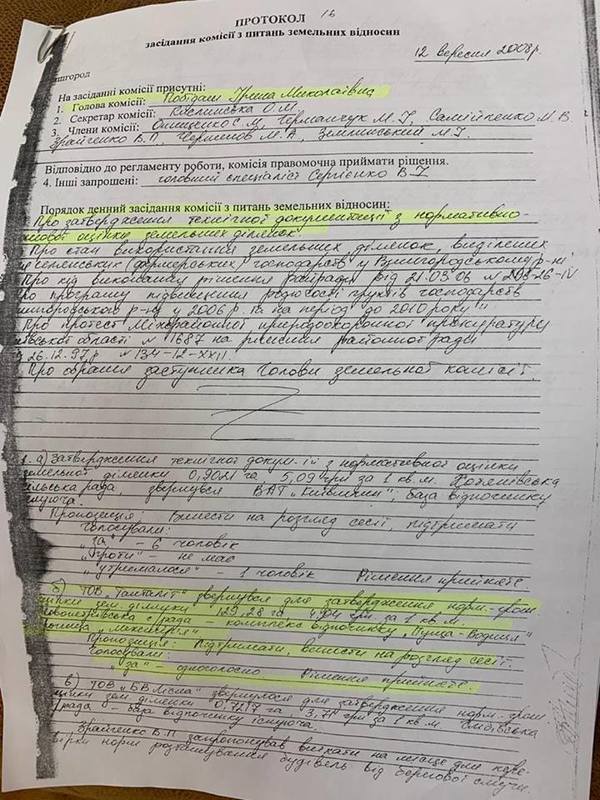 ПРОТОКОЛ 16
засідання комісії з питань земельних відносин
12 вересня 2008р.
ишгород
На засіданні комісії присутні:
1. Голова комісії: Побідаш Ірина Миколаївна
2. Секретар комісії: О.М.
3. Члени комісії: Онищенко С.М, Германчук М.І, Самійленко Н.В
Крайченко В.П, М.А, М.І.
Відповідно до регламенту роботи, комісія правомочна приймати рішення.
4. Інші запрошені: головний спеціаліст Сергієнко В.І
Порядок денний засідання комісії з питань земельних відносин:
Про затвердження технічної документації з нормативно-
грошової оцінки земельних ділянок.
Про стан використання земельних ділянок, виділених
селянських (фермерських) господарств у Вишгородському р-ні
Про хід виконання рішення райради від 21.03.06 № 208-26-IV
Про програму підвищення родючості ґрунтів господарств
р-ну у 2006 р. та на період до 2010 року"
Про протест Міжрайонної природоохоронної прокуратури
Київської області № 1687 на рішення районної ради
з 26.12.97р № 134-12-XXII.
Про обрання заступника Голови земельної комісії.
1. а) Затвердження технічної докум-ії з нормативної оцінки
земельної ділянки 0,9021 га, 5,09 грн за 1 кв.м.
сільська рада, звернувся ВАТ „ "; база відпочинку
існуюча.
Пропозиція: Винести на розгляд сесії, підтримати
Голосували:
„за" – 6 чоловік
„проти" – не має
„утрималося" – 1 чоловік Рішення прийнято
б) ТОВ „Танталіт" звернувся для затвердження норм.-грош.
оцінки зем. ділянки 129,28 га 4,04 грн за 1 кв м.
с/рада – комплекс відпочинку „Пуща-Водиця"
урочище
Пропозиція: Підтримати, винести на розгляд сесії.
Голосували:
„за" – одноголосно Рішення прийнято.
в) ТОВ „БВ Лісма" звернулося для затвердження норм.-грош.
оцінки зем ділянки 0,7217 га 3,75 грн за 1 кв м.
с/рада – база відпочинку існуюча.
Крайченко В.П запропонував виїхати на місце для пере-
вірки норм розташування будівель від берегової смуги.